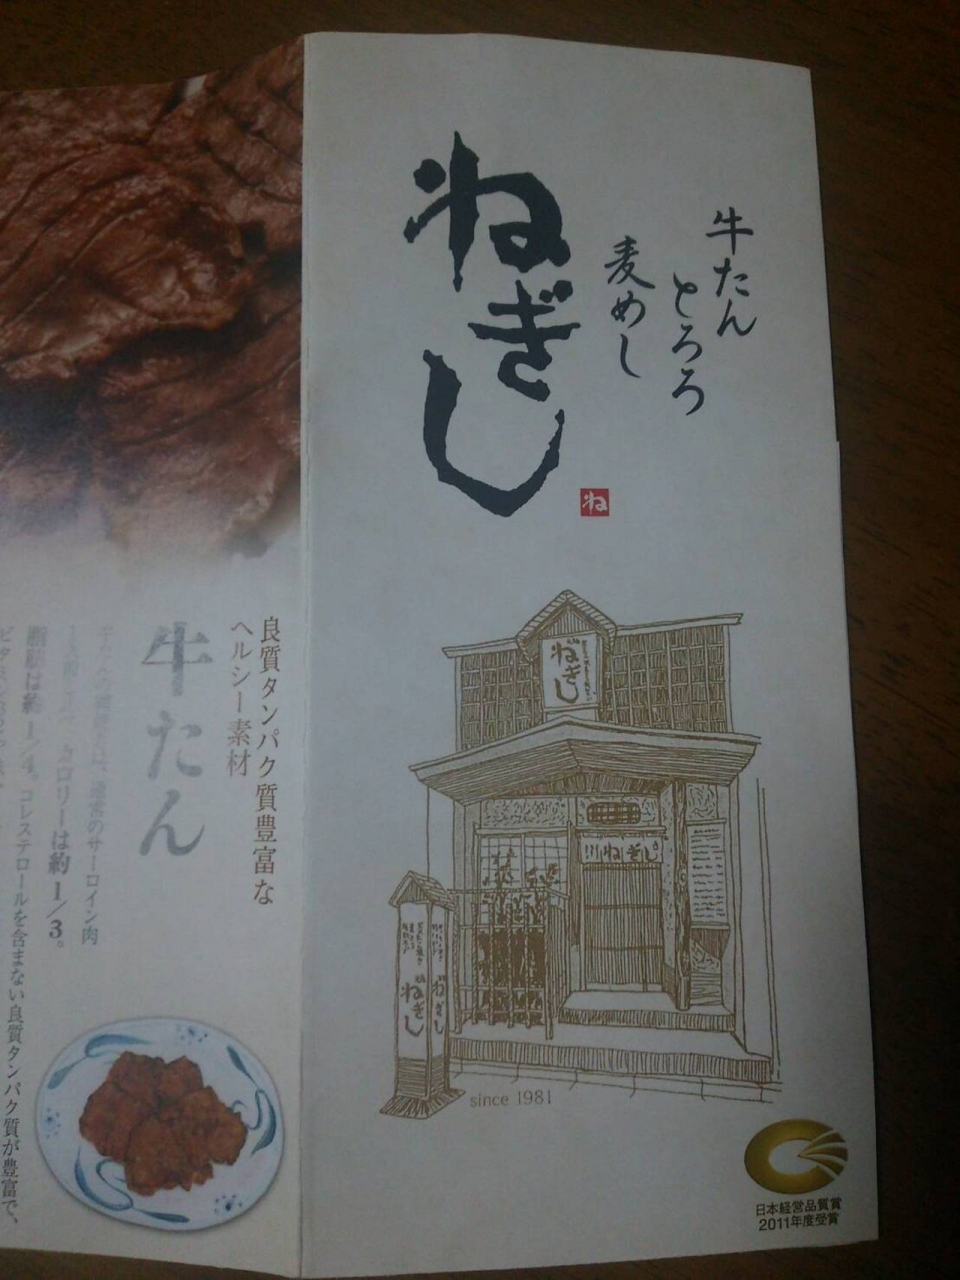 牛たん
とろろ
麦めし
ねぎし
ね
ねぎし
ねぎし
ねぎし
ねぎし
since 1981
日本経営品質賞
2011年度受賞
良質タンパク質豊富な
ヘルシー素材
牛たん
通常のサーロイン肉
カロリーは約1/3。
脂肪は約1/4。コレステロールを含まない良質タンパク質が豊富で、